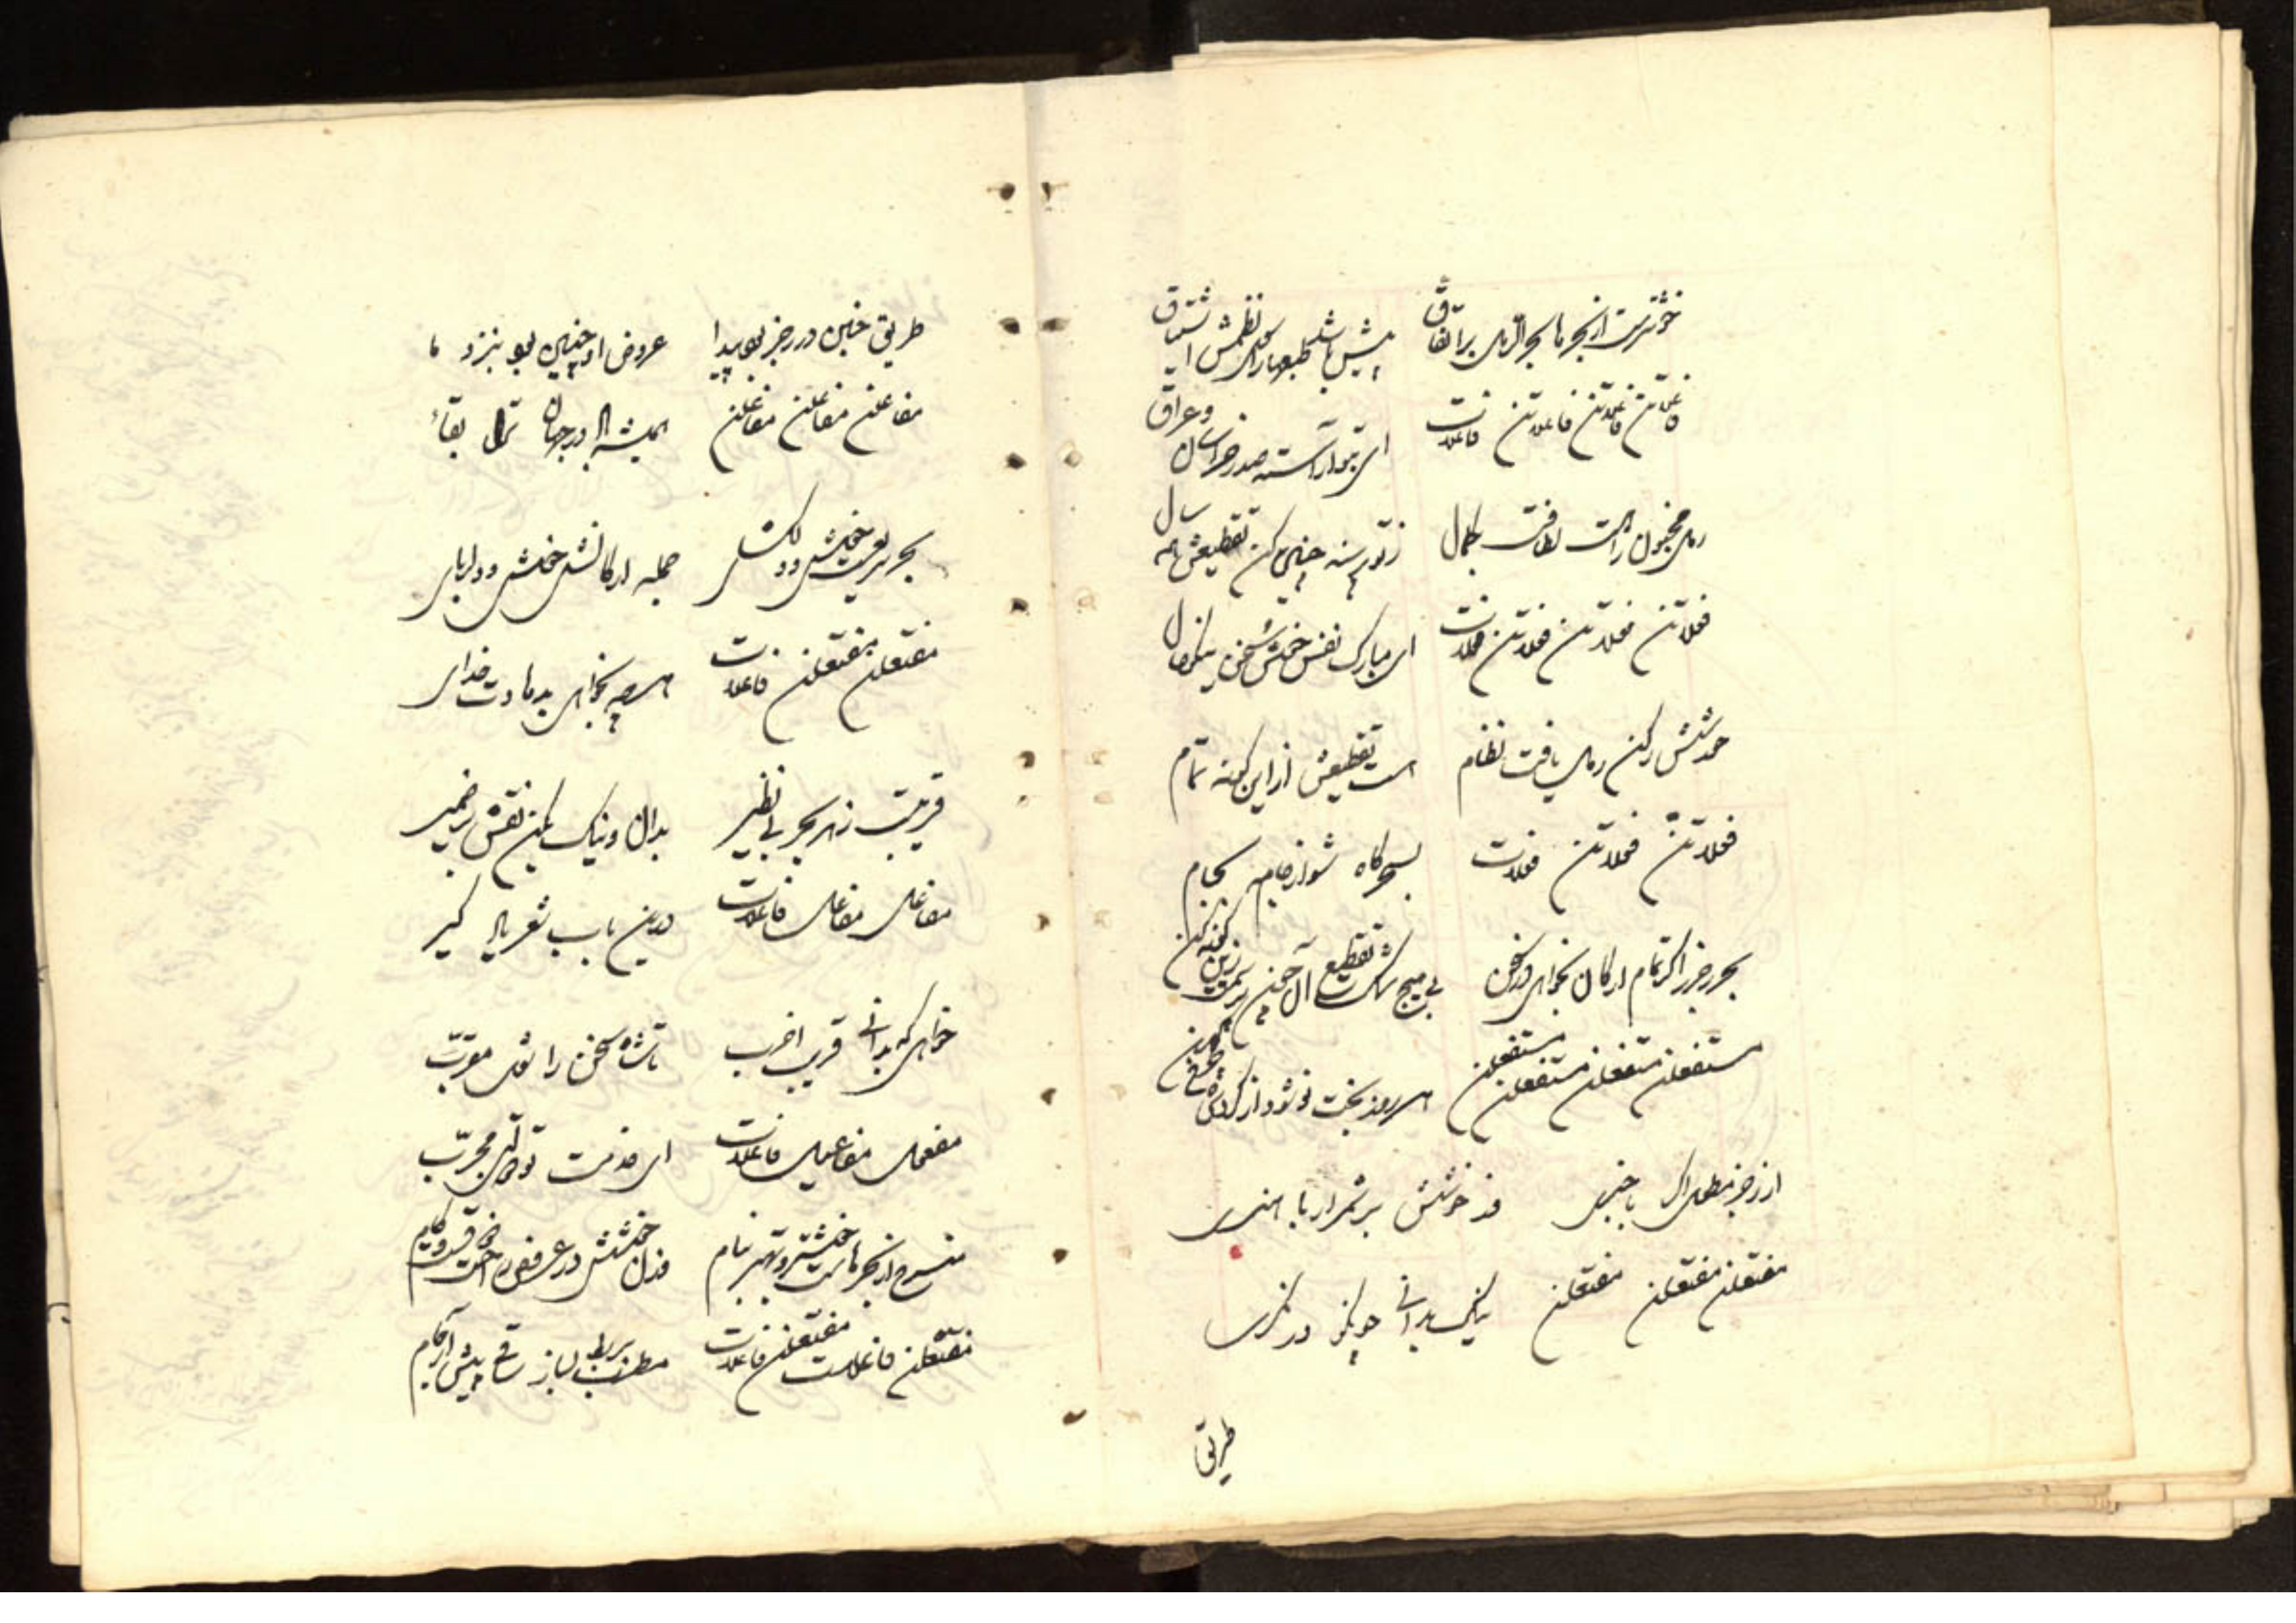 خوشترست از بحرها بحر الرمل بر اتفاق
پیش باشد طبعها را سوی نظمش اشتیاق
فاعلاتن فاعلاتن فاعلاتن فاعلات
ای بتو آراسته صدر خراسان و عراق
رمل مخبول راست لطافت بکمال
زتو پرسند چنین کن تقطیعش
فعلاتن فعلاتن فعلاتن فعلات
ای مبارک نفس خوش سخن نیکو فال
شش رکن رمل یافت نظام
است تقطیعش ازین گونه تمام
فعلاتن فعلاتن فعلات
شو از جام بجام
بحر رجز را گر تمام ارکان بخواهی در سخن
بی هیچ شک تقطیع آن چنین زین گونه کن
مستفعلن مستفعلن مستفعلن مستفعلن
هر روز بختت نو شود از گردش
از رجز مطوی اگر باخبری
وزن خوشش بر شمر ار با هنری
مفتعلن مفتعلن مفتعلن
نیک بدانی چو نکو در نگری
طریق
طریق خبن در رجز بود پیدا
عروض او چنین بود بنزد ما
مفاعلن مفاعلن مفاعلن
همیشه در جهان ترا بقا
بحر سریعست خوش و دلگشای
جمله ارکانش خوش و دلربای
مفتعلن مفتعلن فاعلات
هر چه بخواهی بدهادت خدای
قریبست زهر بحر بی نظیر
بدان و نیک بکن نقش بر ضمیر
مفاعیل مفاعیل فاعلات
درین باب شعر یاد گیر
خواهی که بدانی قریب اخرب
تا شاه سخن را شوی مقرب
مفعول مفاعیل فاعلات
ای خدمت تو مجرب
منسرح از بحرهاست خوشتر و بهتر بنام
وزن خوشش در عروض
مفتعلن فاعلات مفتعلن فاعلات
مطرب بربط بساز ساقی پیش آر جام